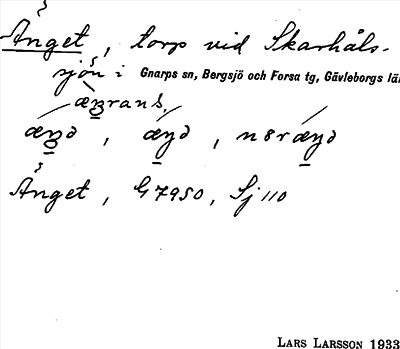 Ånget, torp vid Skarhåls-
sjön i Gnarps sn, Bergsjö och Forsa tg, Gävleborgs lä
Ånget, G7950, Sj 110
LARS LARSSON 1933